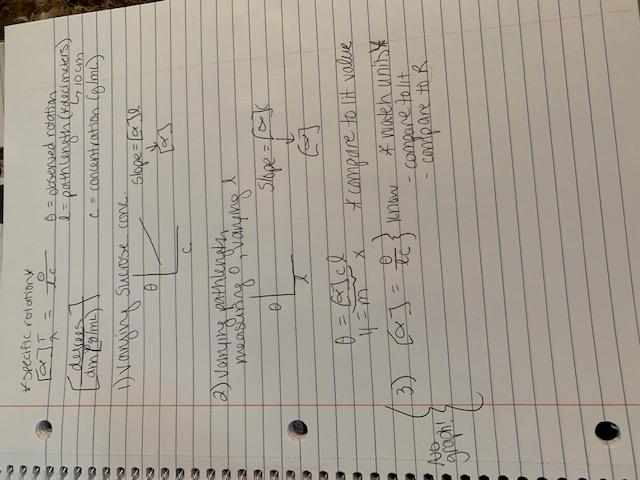 *Specific rotation*
[α]Tλ = θ/lc
θ = observed rotation
l = pathlength (*decimeters)
↳ 10cm
c = concentration (g/mL)
[degrees / dm (g/mL)]
1) Varying Sucrose conc.
θ
c
slope = [α]l
↓
[α]
2) Varying pathlength,
measuring θ, varying l
θ
l
slope = [α]c
↓
[α]
θ = [α]cl
y = m x
*compare to lit value
3) [α] = θ/lc } know
* match units*
- compare to lit
- compare to R
No
graph!